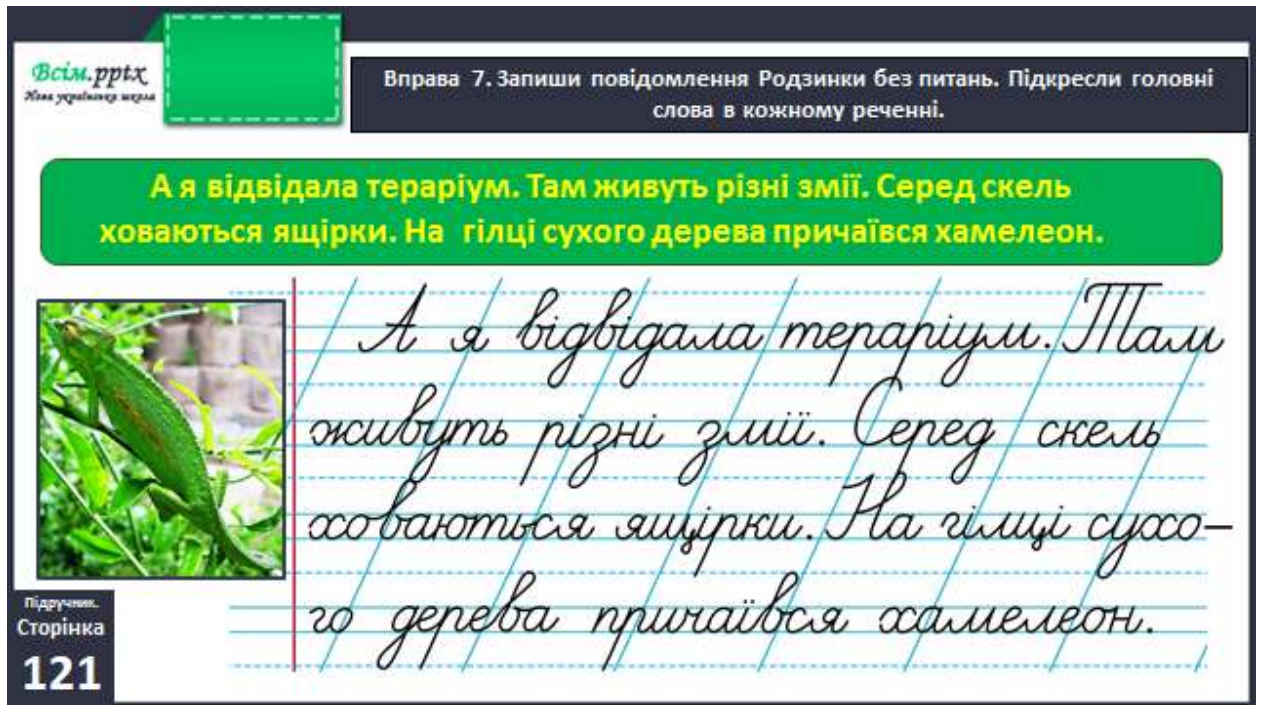 Всім.pptx
Нова українська школа
Вправа 7. Запиши повідомлення Родзинки без питань. Підкресли головні
слова в кожному реченні.
А я відвідала тераріум. Там живуть різні змії. Серед скель
ховаються ящірки. На гілці сухого дерева причаївся хамелеон.
А я відвідала тераріум. Там
живуть різні змії. Серед скель
ховаються ящірки. На гілці сухо-
го дерева причаївся хамелеон.
Підручник.
Сторінка
121